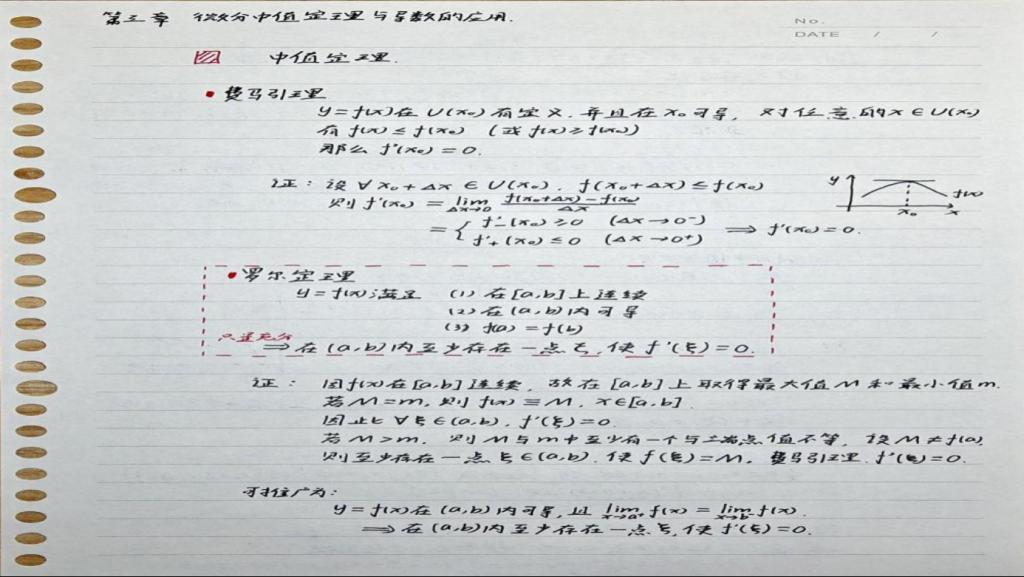 第三章 微分中值定理与导数的应用.
No.
DATE / /
中值定理.
• 费马引理
y=f(x)在U(x₀)有定义.并且在x₀可导, 对任意的x∈U(x₀)
有f(x)≤f(x₀) (或f(x)≥f(x₀))
那么f'(x₀)=0.
证: 设∀x₀+Δx∈U(x₀), f(x₀+Δx)≤f(x₀)
则f'(x₀) = lim Δx→0 (f(x₀+Δx)-f(x₀))/Δx
= { f'₋(x₀)≥0 (Δx→0⁻)
f'₊(x₀)≤0 (Δx→0⁺) ⟹ f'(x₀)=0.
y f(x)
x₀ x
• 罗尔定理
y=f(x)满足 (1) 在[a,b]上连续
(2) 在(a,b)内可导
(3) f(a)=f(b)
只是充分
⟹ 在(a,b)内至少存在一点ξ,使f'(ξ)=0.
证: 因f(x)在[a,b]连续, 故在[a,b]上取得最大值M和最小值m.
若M=m, 则f(x)≡M, x∈[a,b].
因此∀ξ∈(a,b), f'(ξ)=0.
若M>m, 则M与m中至少有一个与端点值不等, 设M≠f(a)
则至少存在一点ξ∈(a,b).使f(ξ)=M, 费马引理.f'(ξ)=0.
可推广为:
y=f(x)在(a,b)内可导,且 lim x→a⁺ f(x) = lim x→b⁻ f(x).
⟹ 在(a,b)内至少存在一点ξ,使f'(ξ)=0.